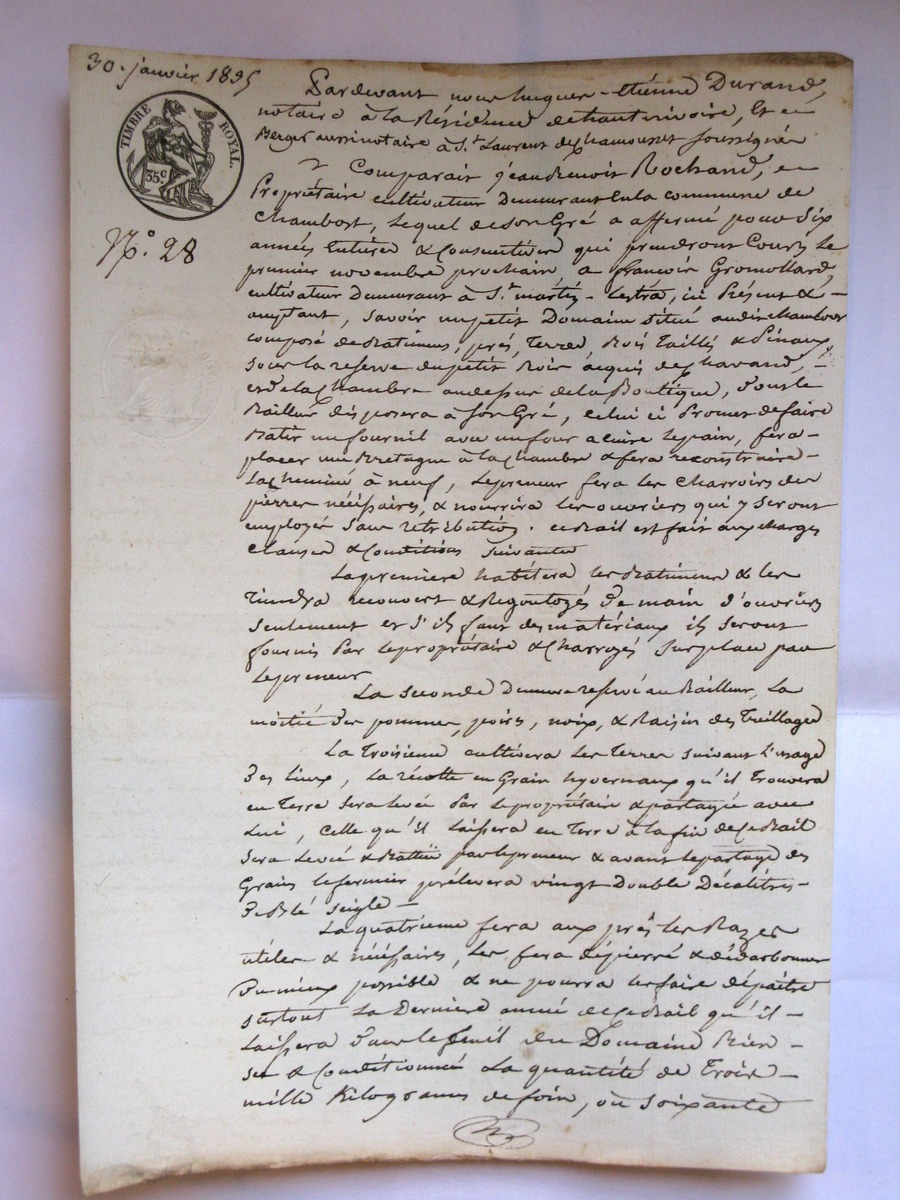 30. janvier 1835
TIMBRE ROYAL.
35 c
N.º 28
Pardevant nous hugues-étienne Durand,
notaire à la Résidence de hauterivoire, Et en
Berger aussi notaire à St. Laurent de chamousset soussignés
Comparait jean benoit Rochand, en
Propriétaire cultivateur Demeurant en la commune de
Chambost, Lequel de son Gré a affermé pour Six
années Entieres & Consécutives qui prendront Cours Le
premier novembre prochain, a françois Gromollard,
cultivateur Demeurant à St. martin-Lestra, ici Présent &
acceptant, Savoir un petit Domaine Situé audit chambost
composé de Batimens, prés, Terres, Bois Taillis & Pinaux,
Sous la reserve du petit Bois acquis de chavand,
et de la chambre audessus de la Boutique, dont le
Bailleur disposera à son Gré, celui ci Promet de faire
Batir un fournil avec un four a cuire le pain, fera
placer une Bretagne à la chambre & fera reconstruire
La cheminé à neuf, Le preneur fera les charrois des
pierres nécéssaires, & nourrira les ouvriers qui y seront
employés sans retribution. ce Bail est fait aux charges
clauses & Conditions suivantes
La premiere habitera les Batimens & les
Tiendra recouvert & Regoutoyés de main d'ouvriers
seulement et s'il faut des matériaux ils seront
fournis Par le propriétaire & charroyés sur place par
Le preneur
La seconde Demeure reservé au Bailleur, La
moitié des pommes, poires, noix, & Raisin des Treillages
La Troisieme cultivera Les Terres suivant l'usage
des Lieux, La récolte en Grain hyvernaux qu'il Trouvera
en Terre sera Levée Par Le propriétaire & partagée avec
Lui, celle qu'il Laissera en Terre à la fin de ce Bail
sera Levée & Battue par le preneur & avant le partage des
Grains le fermier prélevera vingt Double Décalitres
de Blé seigle
La quatrieme fera aux prés les Razes
utiles & nécéssaires, les fera dépierré & dédarbonner
du mieux possible & ne pourra les faire dépaitre
surtout La Derniere année de ce Bail qu'il
Laissera dans le fenil du Domaine Bien
sec & Conditionné La quantité de Trois
mille Kilogrames de foin, ou soixante